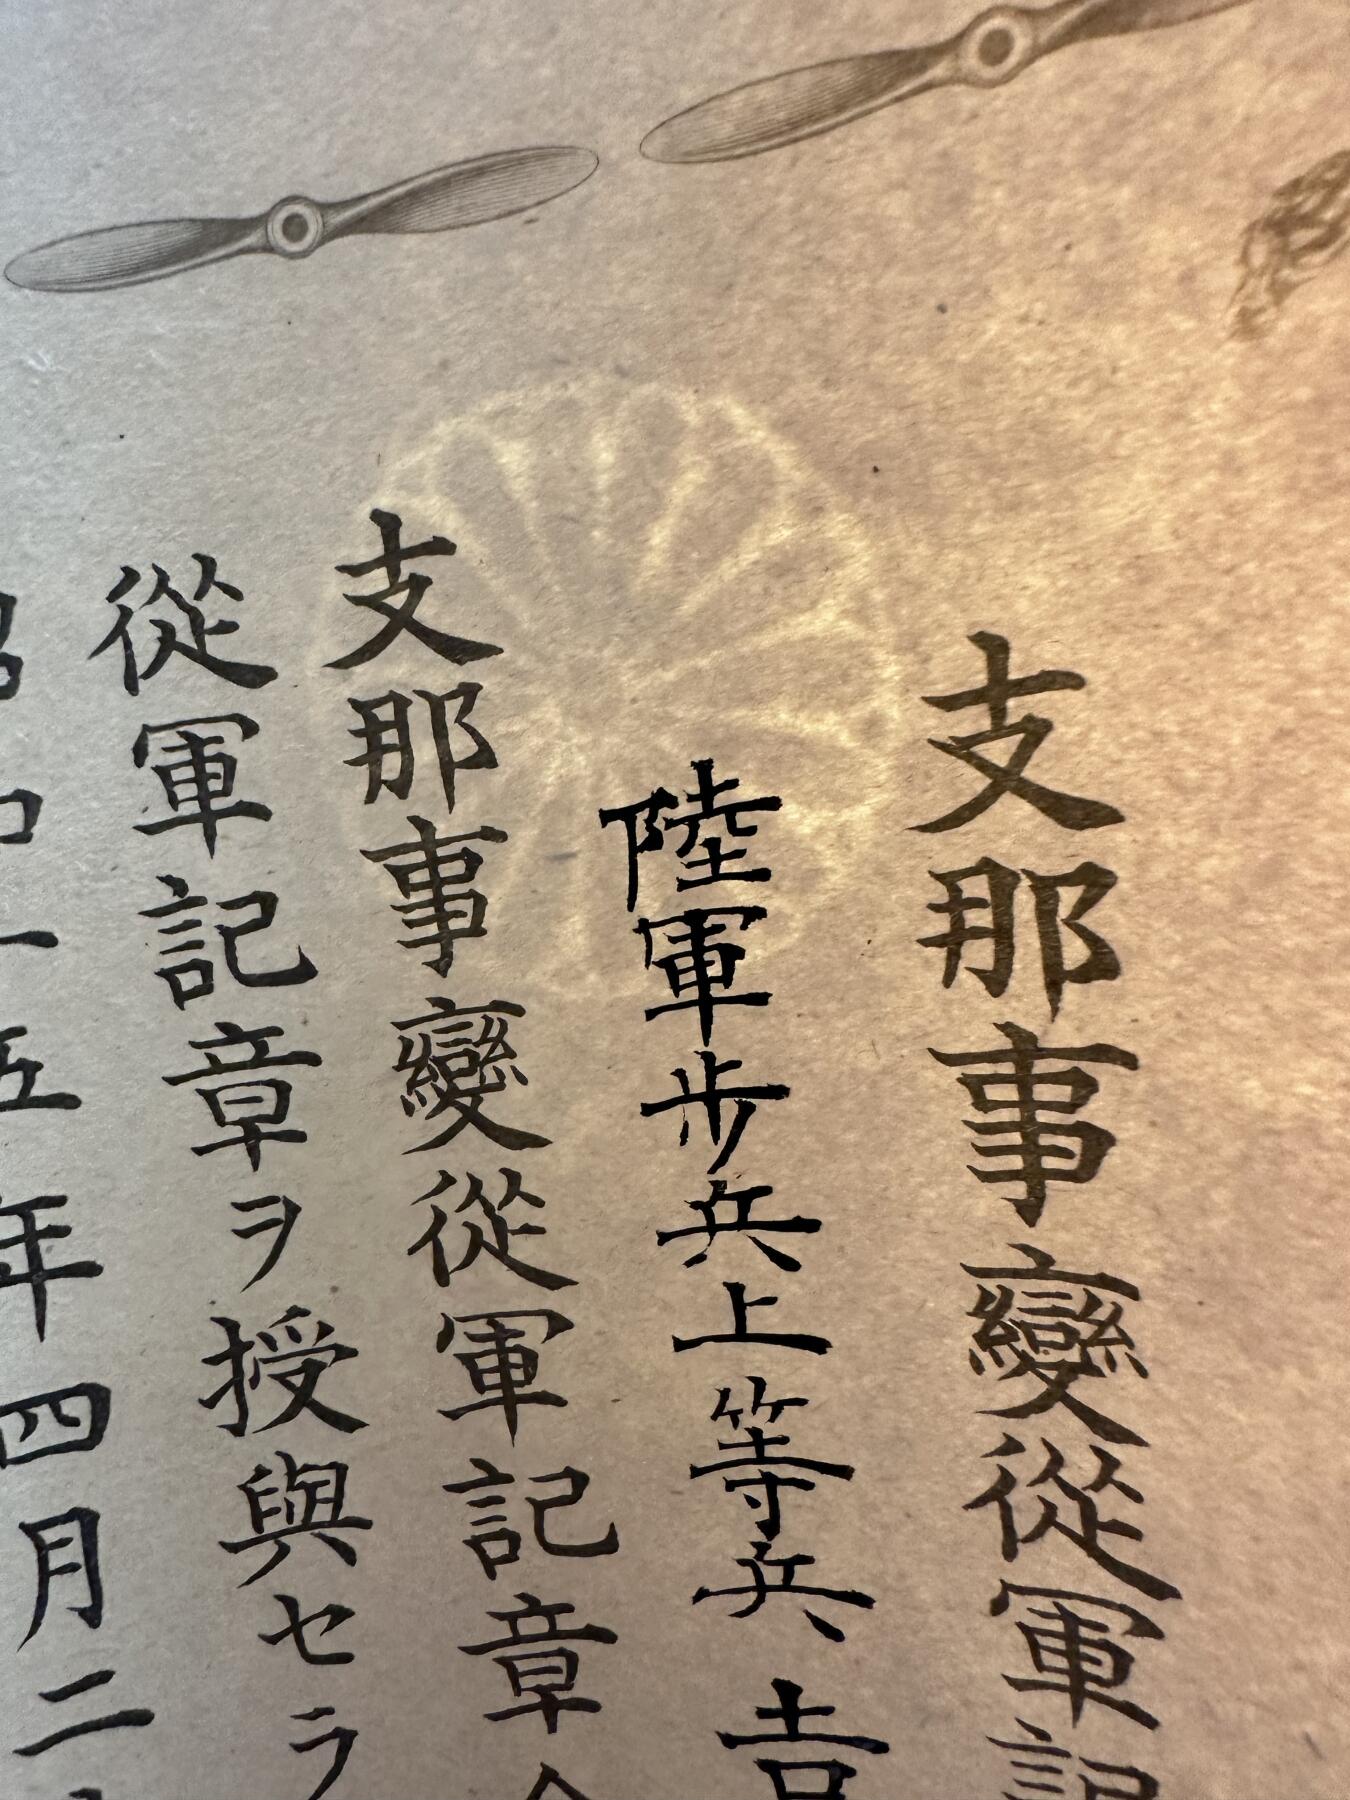 支那事變從軍記
陸軍步兵上等兵 吉
支那事變從軍記章
從軍記章ヲ授與セラ
昭和十五年四月二